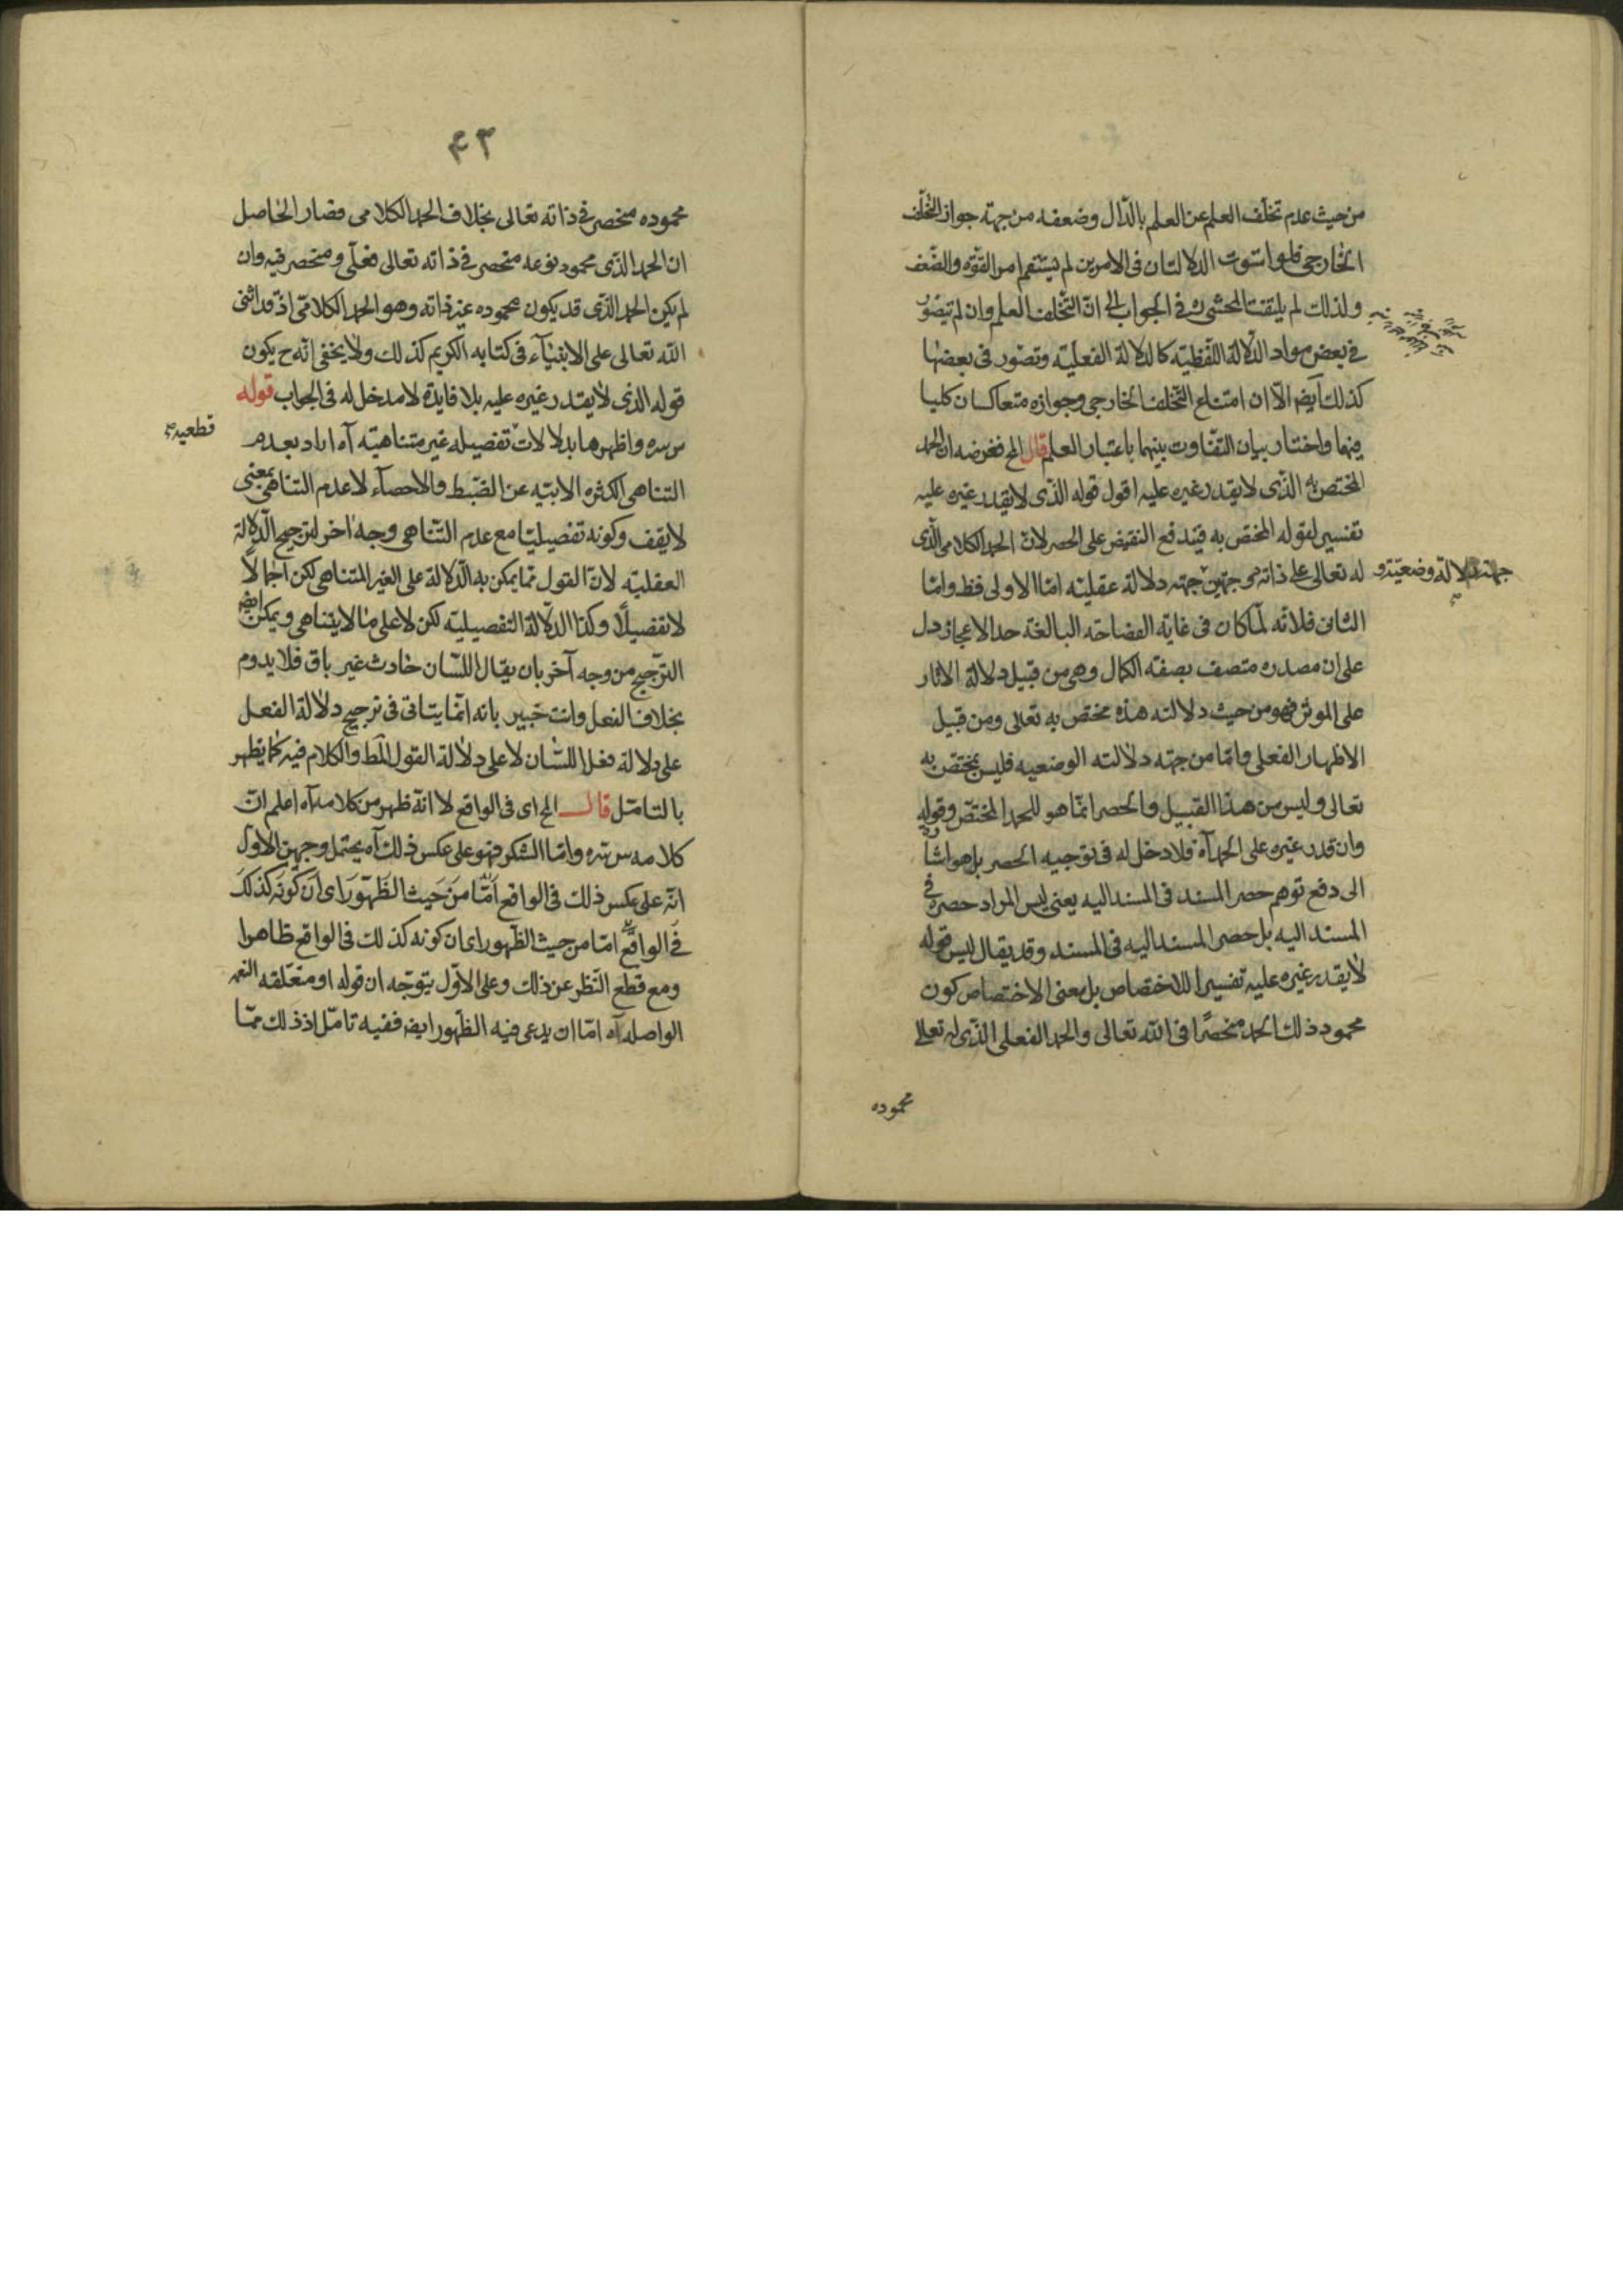 من حيث عدم تخلف العلم عن العلم بالدّال وضعفه من جهة جواز التخلّف
الخارجى فلو استوت الدلالتان فى الامرين لم يستقم امر القوّة والضّعف
ولذلك لم يلتفت المحشى ره فى الجواب الى انّ التّخلف العلم وان لم تيصوّر
فى بعض مواد الدلالة اللفظيّه كالدلالة الفعليّه وتصّور فى بعضها
كذلك ايضا الّا ان امتناع التّخلف الخارجى وجوازه متعاكسان كليا
فيهما واختار بيان التفّاوت بينهما باعتبار العلم قال الخ فغرضه ان الحمد
المختص به الذّى لا يقدر غيره عليه اقول قوله الذّى لا يقدر غيره عليه
تفسير لقوله المختص به فيندفع النقيض على الحصر لان الحمد الكلامى الذّى
له تعالى على ذاته من جهتين جهته دلالة عقليّه امّا الاولى فظ وامّا
جهته دلالة وضعيّة و
الثانى فلانّه لمّا كان فى غاية الفصاحه البالغة حد الاعجاز دل
على ان مصدره متصف بصفة الكمال وهى من قبيل دلالة الاثار
على الموثر فهو من حيث دلالته هذه مختص به تعالى ومن قبيل
الاظهار الفعلى وامّا من جهته دلالته الوضعيه فليس بمختص به
تعالى وليس من هذا القبيل والحصر انمّا هو للحمد المختصّ وقوله
وان قدر غيره على الحمد آه فلا دخل له فى توجيه الحصر بل هو اشارة
الى دفع توهم حصر المسند فى المسند اليه يعنى ليس المراد حصره فى
المسند اليه بل حصر المسند اليه فى المسند وقد يقال ليس قوله
لا يقدر غيره عليه تفسيرا للاختصاص بل معنى الاختصاص كون
محمود ذلك الحمد منحصرًا فى اللّه تعالى والحمد الفعلى الذّى له تعالى
محموده
۴۳
محموده منحصر فى ذاته تعالى بخلاف الحمد الكلامى فصار الحاصل
ان الحمد الذّى محمود نوعه منحصر فى ذاته تعالى فعلّى ومنحصر فيه وان
لم يكن الحمد الذّى قد يكون محموده غير ذاته وهو الحمد الكلامّى اذ قد اثنى
اللّه تعالى على الانبيآء فى كتابه الكريم كذلك ولا يخفى انّه ح يكون
قوله الذى لا يقدر غيره عليه بلا فايدة لا مدخل له فى الجواب قوله
س سره واظهرها بدلالات تفصيله غير متناهيّه آه اراد بعدم
قطعيه
التناهى الكثره الابيّه عن الضّبط والاحصآء لا عدم التناهى بمعنى
لا يقف وكونه تفصيليّا مع عدم التّناهى وجه اخر لترجيح الدّلالة
العقليّه لانّ القول ممّا يمكن به الدّلالة على الغير المتناهى لكن اجمالاً
لا تفصيلًا وكذا الدلّالة التفصيليّه لكن لا على ما لا يتناهى ويمكن ايضا
التّرجيح من وجه آخر بان يقال اللّسان حادث غير باق فلا يدوم
بخلاف الفعل وانت خبير بانه انّما يتاتى فى ترجيح دلالة الفعل
على دلالة فعل اللسّان لا على دلالة القول المط والكلام فيه كما يظهر
بالتامّل قال الخ اى فى الواقع لا انّه ظهر من كلامه آه اعلم انّ
كلامه س سره وامّا الشكر فهو على عكس ذلك آه يحتمل وجهين الاول
انّه على عكس ذلك فى الواقع امّا من حيث الظهور اى ان كونه كذلك
فى الواقع امّا من حيث الظّهور اى ان كونه كذلك فى الواقع ظاهرا
ومع قطع النّظر عن ذلك وعلى الاوّل يتوّجه ان قوله او متعّلقه النعمه
الواصله آه امّا ان يدعى فيه الظّهور ايضا ففيه تامّل اذ ذلك ممّا